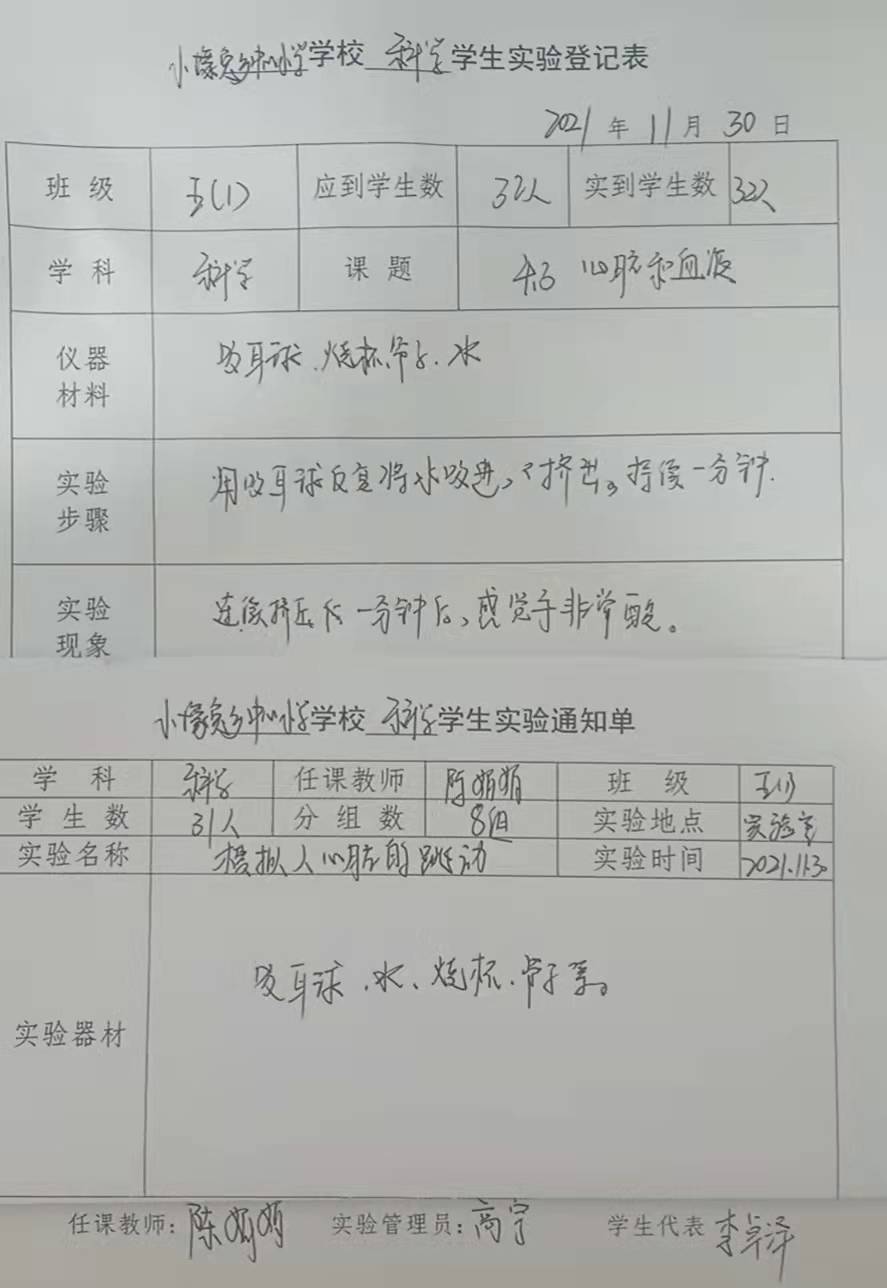 小壕兔乡中心小学学校 科学 学生实验登记表
2021 年 11 月 30 日
班 级 五(1) 应到学生数 32人 实到学生数 32人
学 科 科学 课 题 4.3 心脏和血液
仪器 吸耳球、烧杯、管子、水
材料
实验 用吸耳球反复将水吸进、挤出。持续一分钟.
步骤
实验 连续挤压 一分钟后,感觉手非常酸。
现象
小壕兔乡中心小学学校 科学 学生实验通知单
学 科 科学 任课教师 陈娟娟 班 级 五(1)
学 生 数 31人 分 组 数 8组 实验地点 实验室
实验名称 模拟人心脏的跳动 实验时间 2021.11.30
实验器材 吸耳球、水、烧杯、管子等。
任课教师:陈娟娟 实验管理员:高宇 学生代表 李卓泽